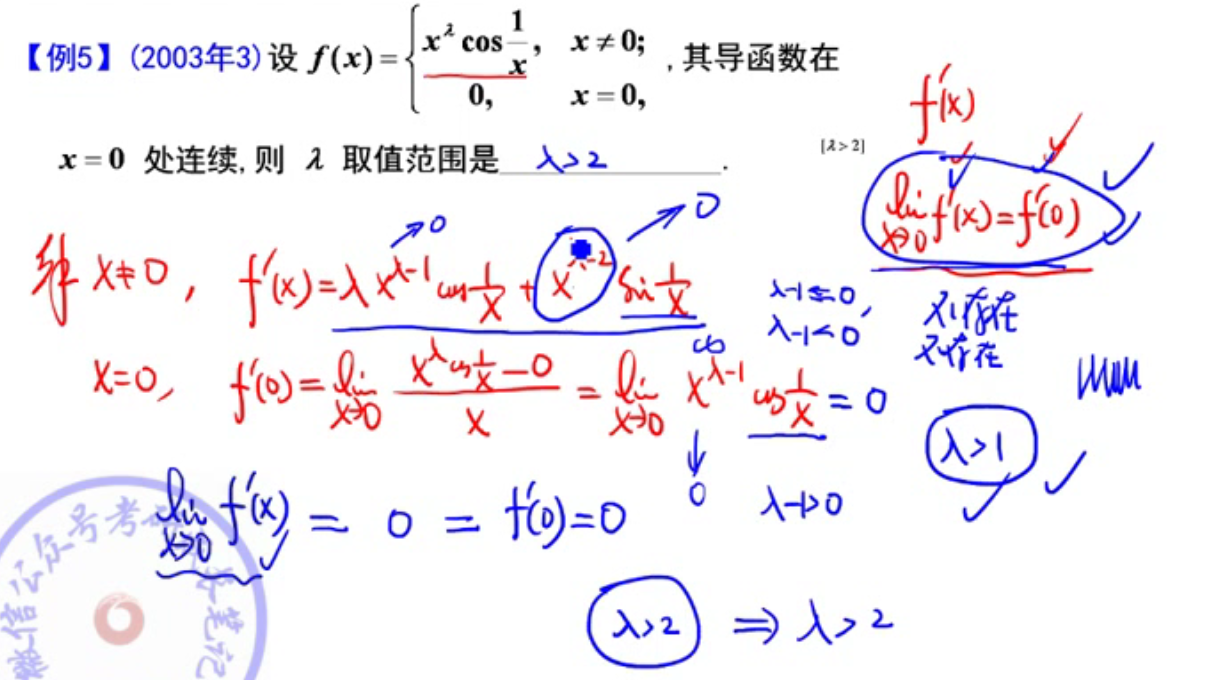 【例5】(2003年3) 设 f(x) = { x^λ cos 1/x, x ≠ 0; 0, x = 0, , 其导函数在
x = 0 处连续, 则 λ 取值范围是 λ>2 .
[λ > 2]
f'(x)
lim x→0 f'(x) = f'(0)
解 x≠0, f'(x) = λ x^{λ-1} cos 1/x + x^{λ-2} sin 1/x
→0
→0
λ-1≤0,
λ-1<0
不存在
不存在
x=0, f'(0) = lim x→0 (x^λ cos 1/x - 0)/x = lim x→0 x^{λ-1} cos 1/x = 0
∞
↓
0
λ-1>0
λ>1
lim x→0 f'(x) = 0 = f'(0) = 0
λ>2 ⇒ λ>2
微信公众号考研
笔记